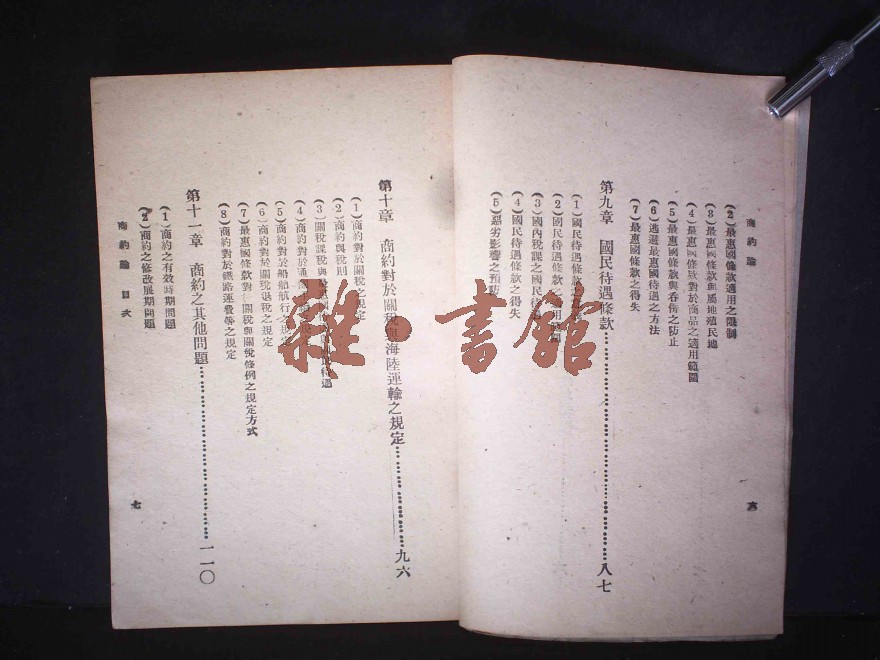 商約論
(2)最惠國條款適用之限制
(3)最惠國條款與屬地殖民地
(4)最惠國條款對於商品之適用範圍
(5)最惠國條款與吞併之防止
(6)逃避最惠國待遇之方法
(7)最惠國條款之得失
第九章 國民待遇條款 八七
(1)國民待遇條款
(2)國民待遇條款之用
(3)國內稅課之國民待遇
(4)國民待遇條款之得失
(5)惡劣影響之預防
六
第十章 商約對於關稅與海陸運輸之規定 九六
(1)商約對於關稅之規定
(2)商約與稅則
(3)關稅課稅與 待遇
(4)商約對於通 規定
(5)商約對於船舶航行之規定
(6)商約對於關稅退稅之規定
(7)最惠國條款對 關稅與關稅條例之規定方式
(8)商約對於鐵路運費等之規定
第十一章 商約之其他問題 一一〇
(1)商約之有效時期問題
(2)商約之修改展期問題
商約論 目次
七
雜·書館